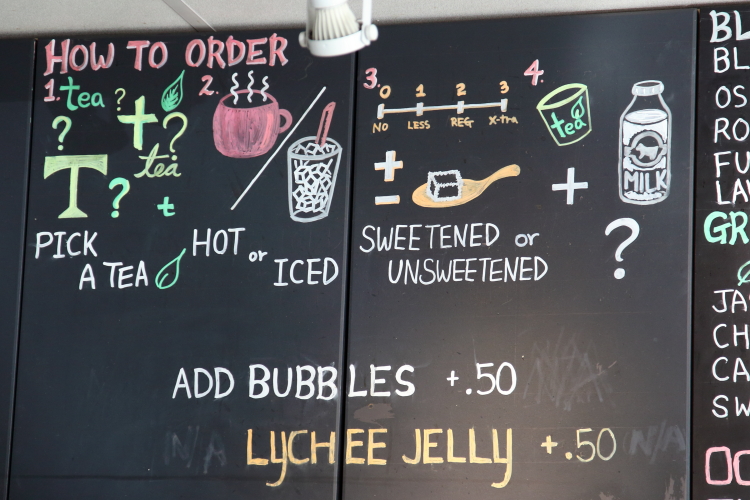 HOW TO ORDER
1. tea ? t ? ? T ? tea t
PICK
A TEA
2.
HOT or ICED
3.
0 1 2 3
NO LESS REG X-tra
+
-
SWEETENED or
UNSWEETENED
4.
tea + MILK
?
ADD BUBBLES +.50
LYCHEE JELLY +.50
N/A N/A
BL
BL
OS
RO
FU
LA
GR
JA
CH
CA
SW